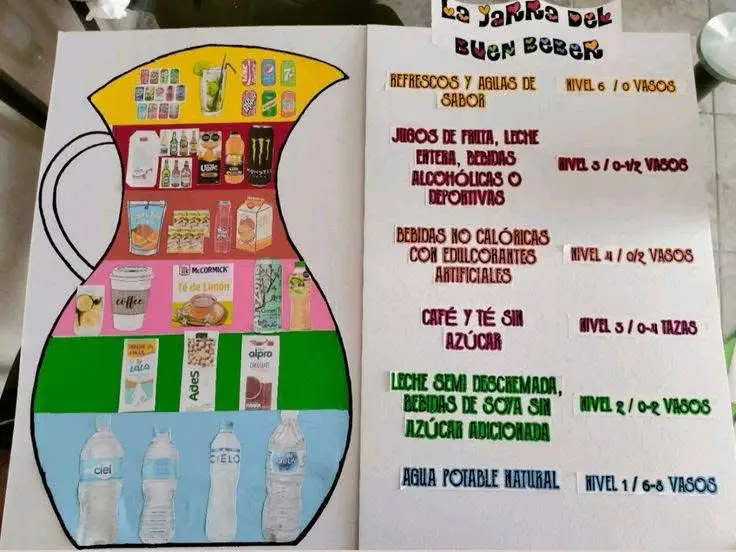 La Jarra del
Buen Beber
REFRESCOS Y AGUAS DE
SABOR
NIVEL 6 / 0 VASOS
JUGOS DE FRUTA, LECHE
ENTERA, BEBIDAS
ALCOHÓLICAS O
DEPORTIVAS
NIVEL 5 / 0-1/2 VASOS
BEBIDAS NO CALÓRICAS
CON EDULCORANTES
ARTIFICIALES
NIVEL 4 / 0/2 VASOS
CAFÉ Y TÉ SIN
AZÚCAR
NIVEL 3 / 0-4 TAZAS
LECHE SEMI DESCREMADA,
BEBIDAS DE SOYA SIN
AZÚCAR ADICIONADA
NIVEL 2 / 0-2 VASOS
AGUA POTABLE NATURAL
NIVEL 1 / 6-8 VASOS
MONSTER
coffee
McCORMICK
Té de Limón
LALA
AdeS
alpro
CHOCOLATE
ciel
CIELO